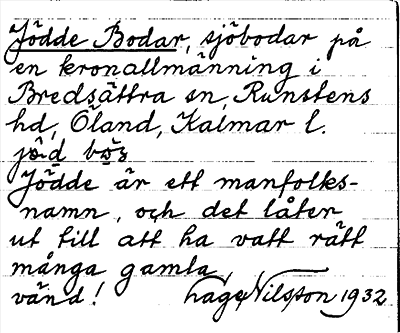 Jödde Bodar, sjöbodar på
en kronallmänning i
Bredsättra sn, Runstens
hd, Öland, Kalmar l.
jö̀d bo̱s
Jödde är ett manfolks-
namn, och det låter
ut till att ha vatt rätt
många gamla,
vänd! Lage Nilsson 1932